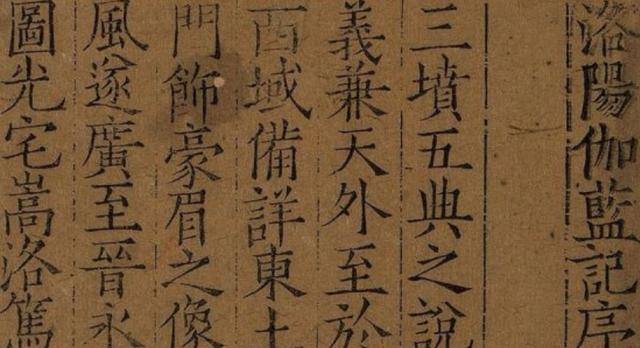 洛陽伽藍記序
三墳五典之說
義兼天外至於
西域備詳東土
門飾豪眉之像
風遂廣至晉永
圖光宅嵩洛篤